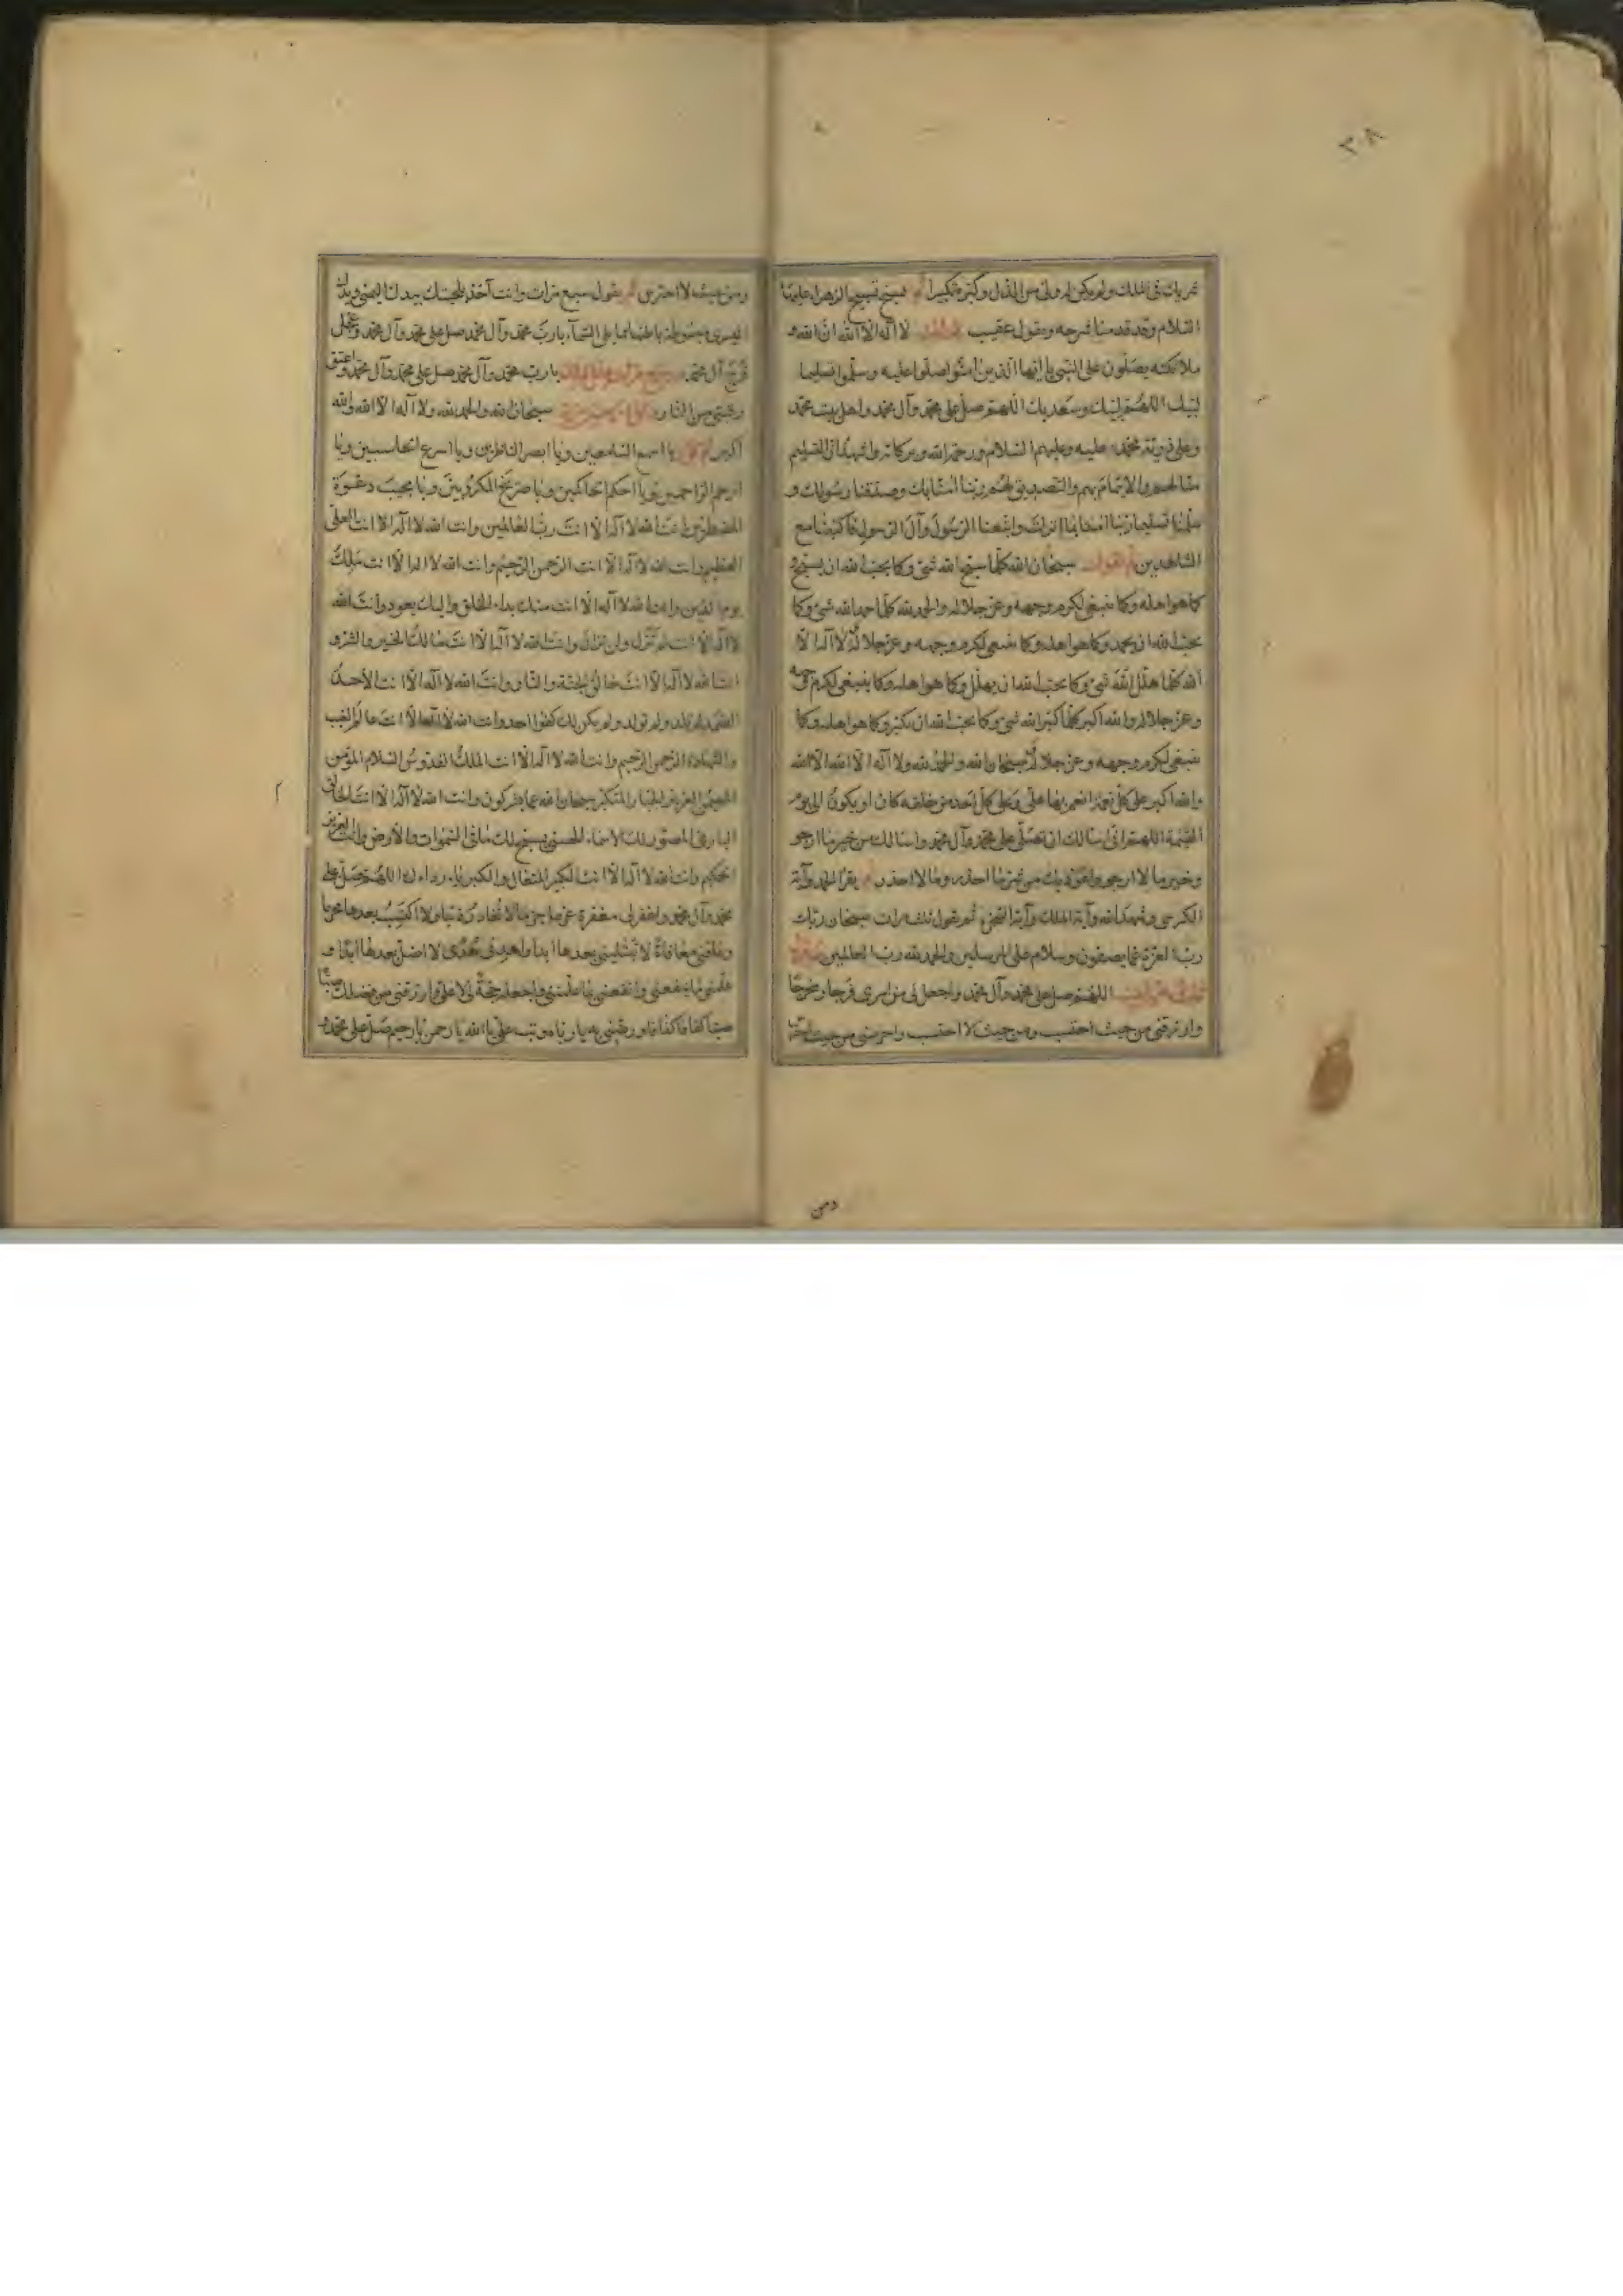 ٣٠٨
شريك فى الملك ولم يكن له ولى من الذل وكبره تكبيرا ثم يسبح تسبيح الزهراء عليها
السلام وقد قدمنا شرحه ويقول عقيب لا اله الا الله ان الله و
ملائكته يصلون على النبى يا ايها الذين امنوا صلوا عليه وسلموا تسليما
لبيك اللهم لبيك وسعديك اللهم صل على محمد وآل محمد واهل بيت محمد
وعلى ذرية محمد عليه وعليهم السلام ورحمة الله وبركاته واشهد ان التسليم
منا لهم والايتمام بهم والتصديق لهم ربنا امنا بك وصدقنا رسولك و
سلمنا تسليما ربنا امنا بما انزلت واتبعنا الرسول وآل الرسول فاكتبنا مع
الشاهدين ثم تقول سبحان الله كلما سبح الله شئ وكما يحب الله ان يسبح و
كما هو اهله وكما ينبغى لكرم وجهه وعز جلاله والحمد لله كلما حمد الله شئ وكما
يحب الله ان يحمد وكما هو اهله وكما ينبغى لكرم وجهه وعز جلاله ولا اله الا
الله كلما هلل الله شئ وكما يحب الله ان يهلل وكما هو اهله وكما ينبغى لكرم وجهه
وعز جلاله والله اكبر كلما كبر الله شئ وكما يحب الله ان يكبر وكما هو اهله وكما
ينبغى لكرم وجهه وعز جلاله سبحان الله والحمد لله ولا اله الا الله الا الله
والله اكبر على كل نعمة انعم بها على وعلى كل احد من خلقه كان او يكون الى يوم
القيمة اللهم انى اسالك ان تصلى على محمد وآل محمد واسالك من خير ما ارجو
وخير ما لا ارجو واعوذ بك من شر ما احذر وما لا احذر ثم يقرأ الحمد وآية
الكرسى وشهد الله وآية الملك وآية السخرة ثم يقول ثلث مرات سبحان ربك
رب العزة عما يصفون وسلام على المرسلين والحمد لله رب العالمين
اللهم صل على محمد وآل محمد واجعل لى من امرى فرجا ومخرجا
وارزقنى من حيث احتسب ومن حيث لا احتسب واحرسنى من حيث احترس
ومن
ومن حيث لا احترس ثم يقول سبع مرات وانت آخذ بلحيتك بيدك اليمنى ويدك
اليسرى مبسوطة باطنها مما يلى السماء يا رب محمد وآل محمد صل على محمد وآل محمد وعجل
فرج آل محمد يا رب محمد وآل محمد صل على محمد وآل محمد واعتق
رقبتى من النار سبحان الله والحمد لله ولا اله الا الله والله
اكبر يا اسمع السامعين ويا ابصر الناظرين ويا اسرع الحاسبين ويا
ارحم الراحمين ويا احكم الحاكمين ويا صريخ المكروبين ويا مجيب دعوة
المضطرين انت الله لا اله الا انت رب العالمين وانت الله لا اله الا انت العلى
العظيم وانت الله لا اله الا انت الرحمن الرحيم وانت الله لا اله الا انت ملك
يوم الدين وانت الله لا اله الا انت منك بداء الخلق واليك يعود وانت الله
لا اله الا انت لم تزل ولن تزال وانت الله لا اله الا انت مالك الخير والشر و
انت الله لا اله الا انت خالق الجنة والنار وانت الله لا اله الا انت الاحد
الصمد لم تلد ولم تولد ولم يكن لك كفوا احد وانت الله لا اله الا انت عالم الغيب
والشهادة الرحمن الرحيم وانت الله لا اله الا انت الملك القدوس السلام المؤمن
المهيمن العزيز الجبار المتكبر سبحان الله عما يشركون وانت الله لا اله الا انت الخالق
البارئ المصور لك الاسماء الحسنى يسبح لك ما فى السموات والارض وانت العزيز
الحكيم وانت الله لا اله الا انت الكبير المتعال والكبرياء رداءك اللهم صل على
محمد وآل محمد واغفر لى مغفرة عزما جزما لا تغادر ذنبا ولا اكتسب بعدها محرما
وعافنى معافاة لا تبتلينى بعدها ابدا واهدنى هدى لا اضل بعدها ابدا و
علمنى ما ينفعنى وانفعنى بما علمتنى واجعله حجة لى لا على وارزقنى من فضلك صبا
صبا كفافا كفافا ورضنى به يا رباه وتب على يا الله يا رحمن يا رحيم صل على محمد و